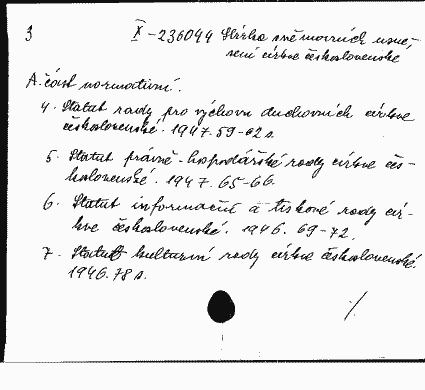 3 IX-236044 Sbírka sněmovních usne-
sení církve československé
A. část normativní.
4. Statut rady pro výchovu duchovních církve
československé. 1947. 59-62 s.
5. Statut právně-hospodářské rady církve čes-
koslovenské. 1947. 65-66.
6. Statut informační a tiskové rady cír-
kve československé. 1946. 69-72.
7. Statut kulturní rady církve československé.
1946. 78 s.
./.